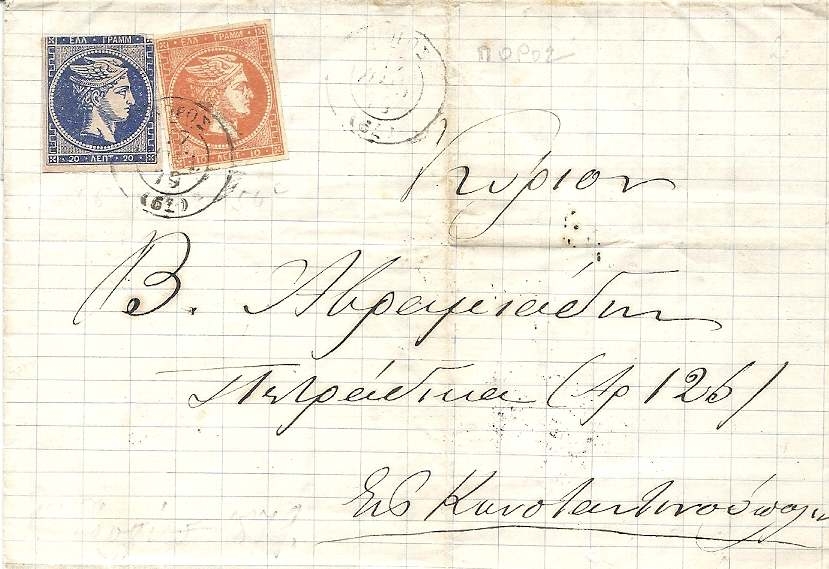 ΕΛΛ ΓΡΑΜΜ
20 ΛΕΠΤ 20
ΕΛΛ ΓΡΑΜΜ
10 ΛΕΠΤ 10
(61)
(61)
ΠΟΡΟΣ
Κύριον
Β. Αβραμιάδην
Πετράδικα (Αρ 126)
Εις Κωνσταντινούπολιν